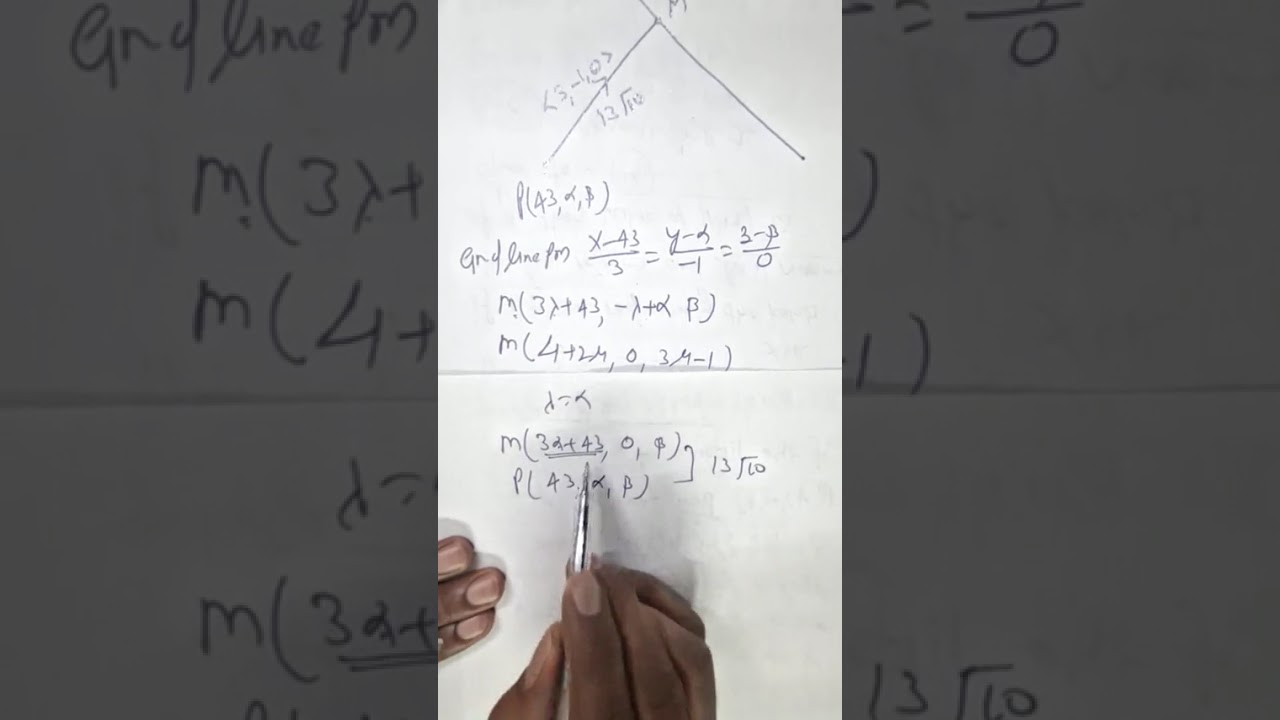 M
<3,-1,0>
13√10
P(43,α,β)
line (x-43)/3 = (y-α)/-1 = (3-β)/0
m(3λ+43, -λ+α β)
m(4+2μ, 0, 3μ-1)
λ=α
m(3α+43, 0, β)
P(43, α, β) ] 13√10